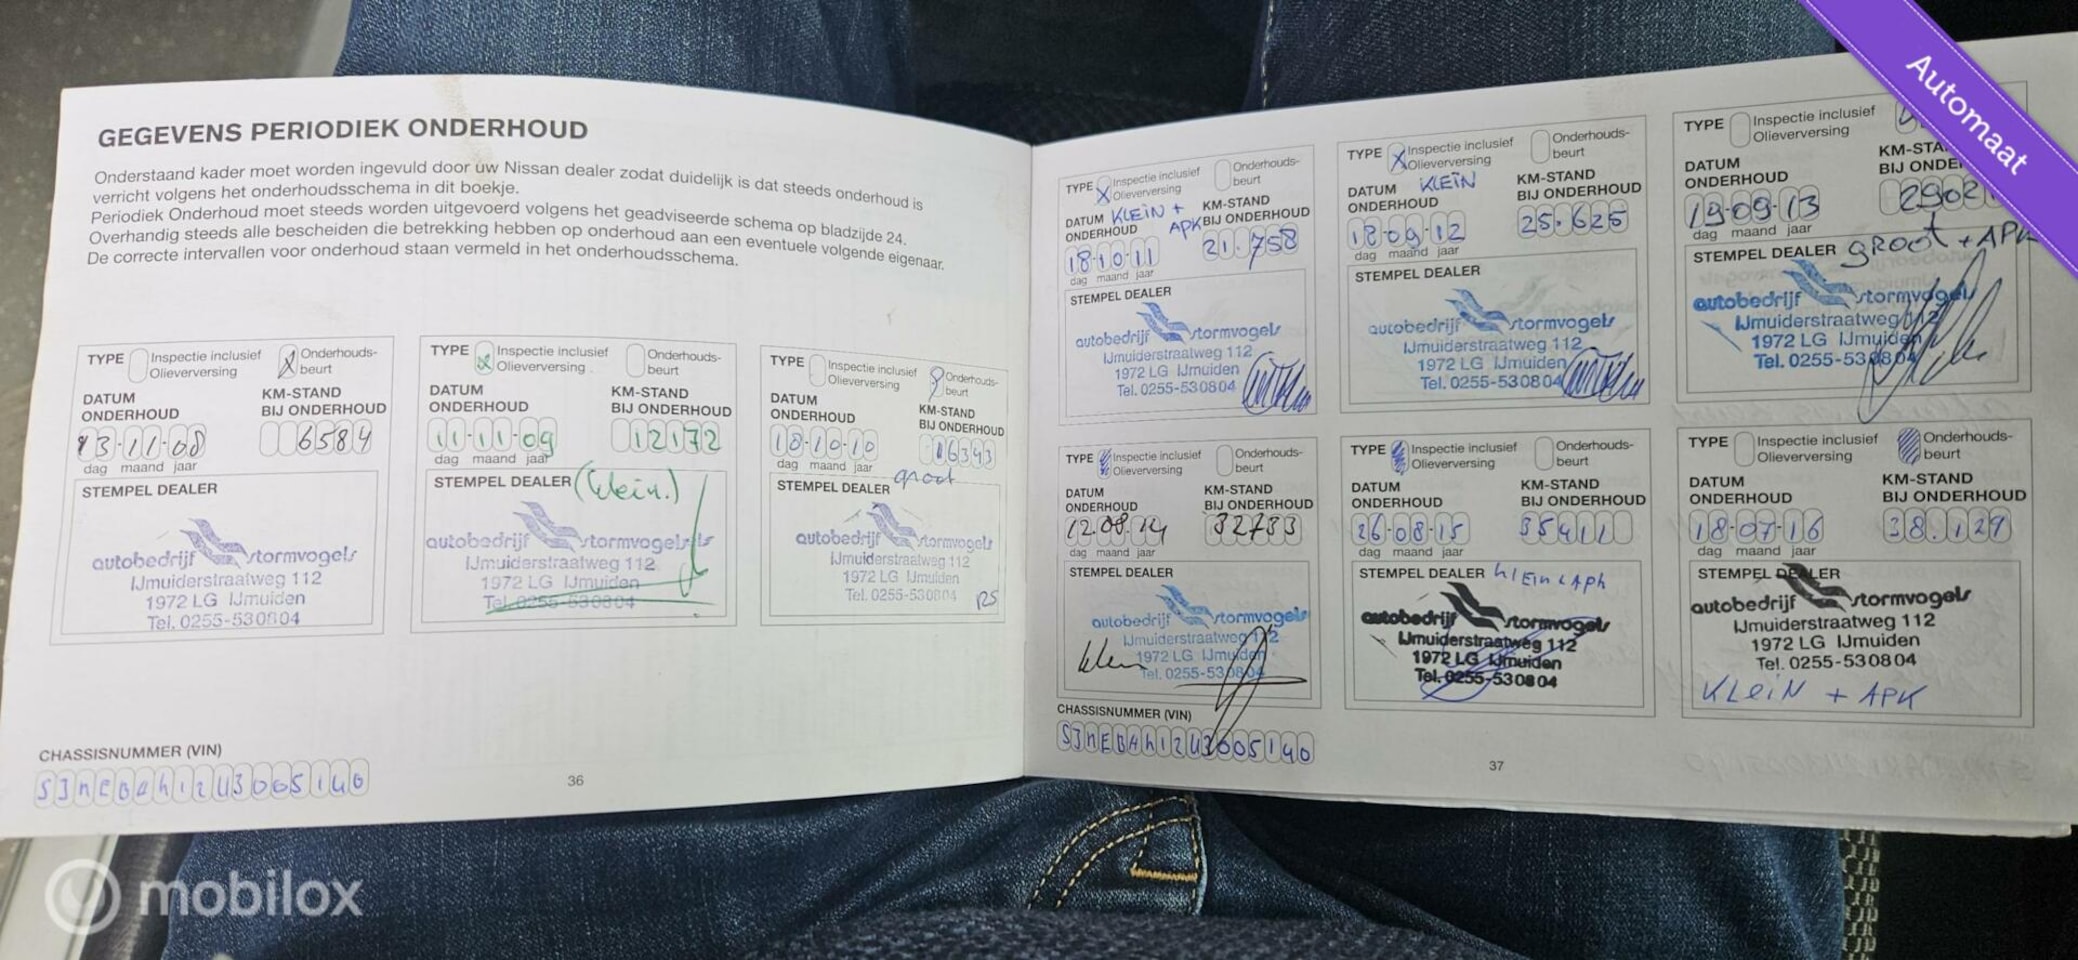 GEGEVENS PERIODIEK ONDERHOUD
Onderstaand kader moet worden ingevuld door uw Nissan dealer zodat duidelijk is dat steeds onderhoud is
verricht volgens het onderhoudsschema in dit boekje.
Periodiek Onderhoud moet steeds worden uitgevoerd volgens het geadviseerde schema op bladzijde 24.
Overhandig steeds alle bescheiden die betrekking hebben op onderhoud aan een eventuele volgende eigenaar.
De correcte intervallen voor onderhoud staan vermeld in het onderhoudsschema.
TYPE Inspectie inclusief Olieverversing X Onderhouds-beurt
DATUM ONDERHOUD KM-STAND BIJ ONDERHOUD
13-11-08 6584
dag maand jaar
STEMPEL DEALER
autobedrijf stormvogels
IJmuiderstraatweg 112
1972 LG IJmuiden
Tel. 0255-530804
TYPE X Inspectie inclusief Olieverversing Onderhouds-beurt
DATUM ONDERHOUD KM-STAND BIJ ONDERHOUD
11-11-09 12172
dag maand jaar
STEMPEL DEALER (klein.)
autobedrijf stormvogels
IJmuiderstraatweg 112
1972 LG IJmuiden
Tel. 0255-530804
TYPE Inspectie inclusief Olieverversing Onderhouds-beurt
DATUM ONDERHOUD KM-STAND BIJ ONDERHOUD
18-10-10 16343
dag maand jaar
STEMPEL DEALER groot
autobedrijf stormvogels
IJmuiderstraatweg 112
1972 LG IJmuiden
Tel. 0255-530804
CHASSISNUMMER (VIN)
36
TYPE X Inspectie inclusief Olieverversing Onderhouds-beurt
DATUM ONDERHOUD KLEIN + APK KM-STAND BIJ ONDERHOUD
18-10-11 21.758
dag maand jaar
STEMPEL DEALER
autobedrijf stormvogels
IJmuiderstraatweg 112
1972 LG IJmuiden
Tel. 0255-530804
TYPE X Inspectie inclusief Olieverversing Onderhouds-beurt
DATUM ONDERHOUD KLEIN KM-STAND BIJ ONDERHOUD
18-09-12 25.625
dag maand jaar
STEMPEL DEALER
autobedrijf stormvogels
IJmuiderstraatweg 112
1972 LG IJmuiden
Tel. 0255-530804
TYPE Inspectie inclusief Olieverversing
DATUM ONDERHOUD
19-09-13
dag maand jaar
STEMPEL DEALER GROOT + APK
autobedrijf stormvogels
IJmuiderstraatweg 112
1972 LG IJmuiden
Tel. 0255-530804
TYPE Inspectie inclusief Olieverversing Onderhouds-beurt
DATUM ONDERHOUD KM-STAND BIJ ONDERHOUD
12-08-14 32733
dag maand jaar
STEMPEL DEALER
autobedrijf stormvogels
IJmuiderstraatweg 112
klein 1972 LG IJmuiden
Tel. 0255-530804
TYPE Inspectie inclusief Olieverversing Onderhouds-beurt
DATUM ONDERHOUD KM-STAND BIJ ONDERHOUD
26-08-15 35411
dag maand jaar
STEMPEL DEALER
autobedrijf stormvogels
IJmuiderstraatweg 112
1972 LG IJmuiden
Tel. 0255-530804
TYPE Inspectie inclusief Olieverversing Onderhouds-beurt
DATUM ONDERHOUD KM-STAND BIJ ONDERHOUD
18-07-16 38.129
dag maand jaar
STEMPEL DEALER
autobedrijf stormvogels
IJmuiderstraatweg 112
1972 LG IJmuiden
Tel. 0255-530804
KLEIN + APK
CHASSISNUMMER (VIN)
37
Automaat
mobilox